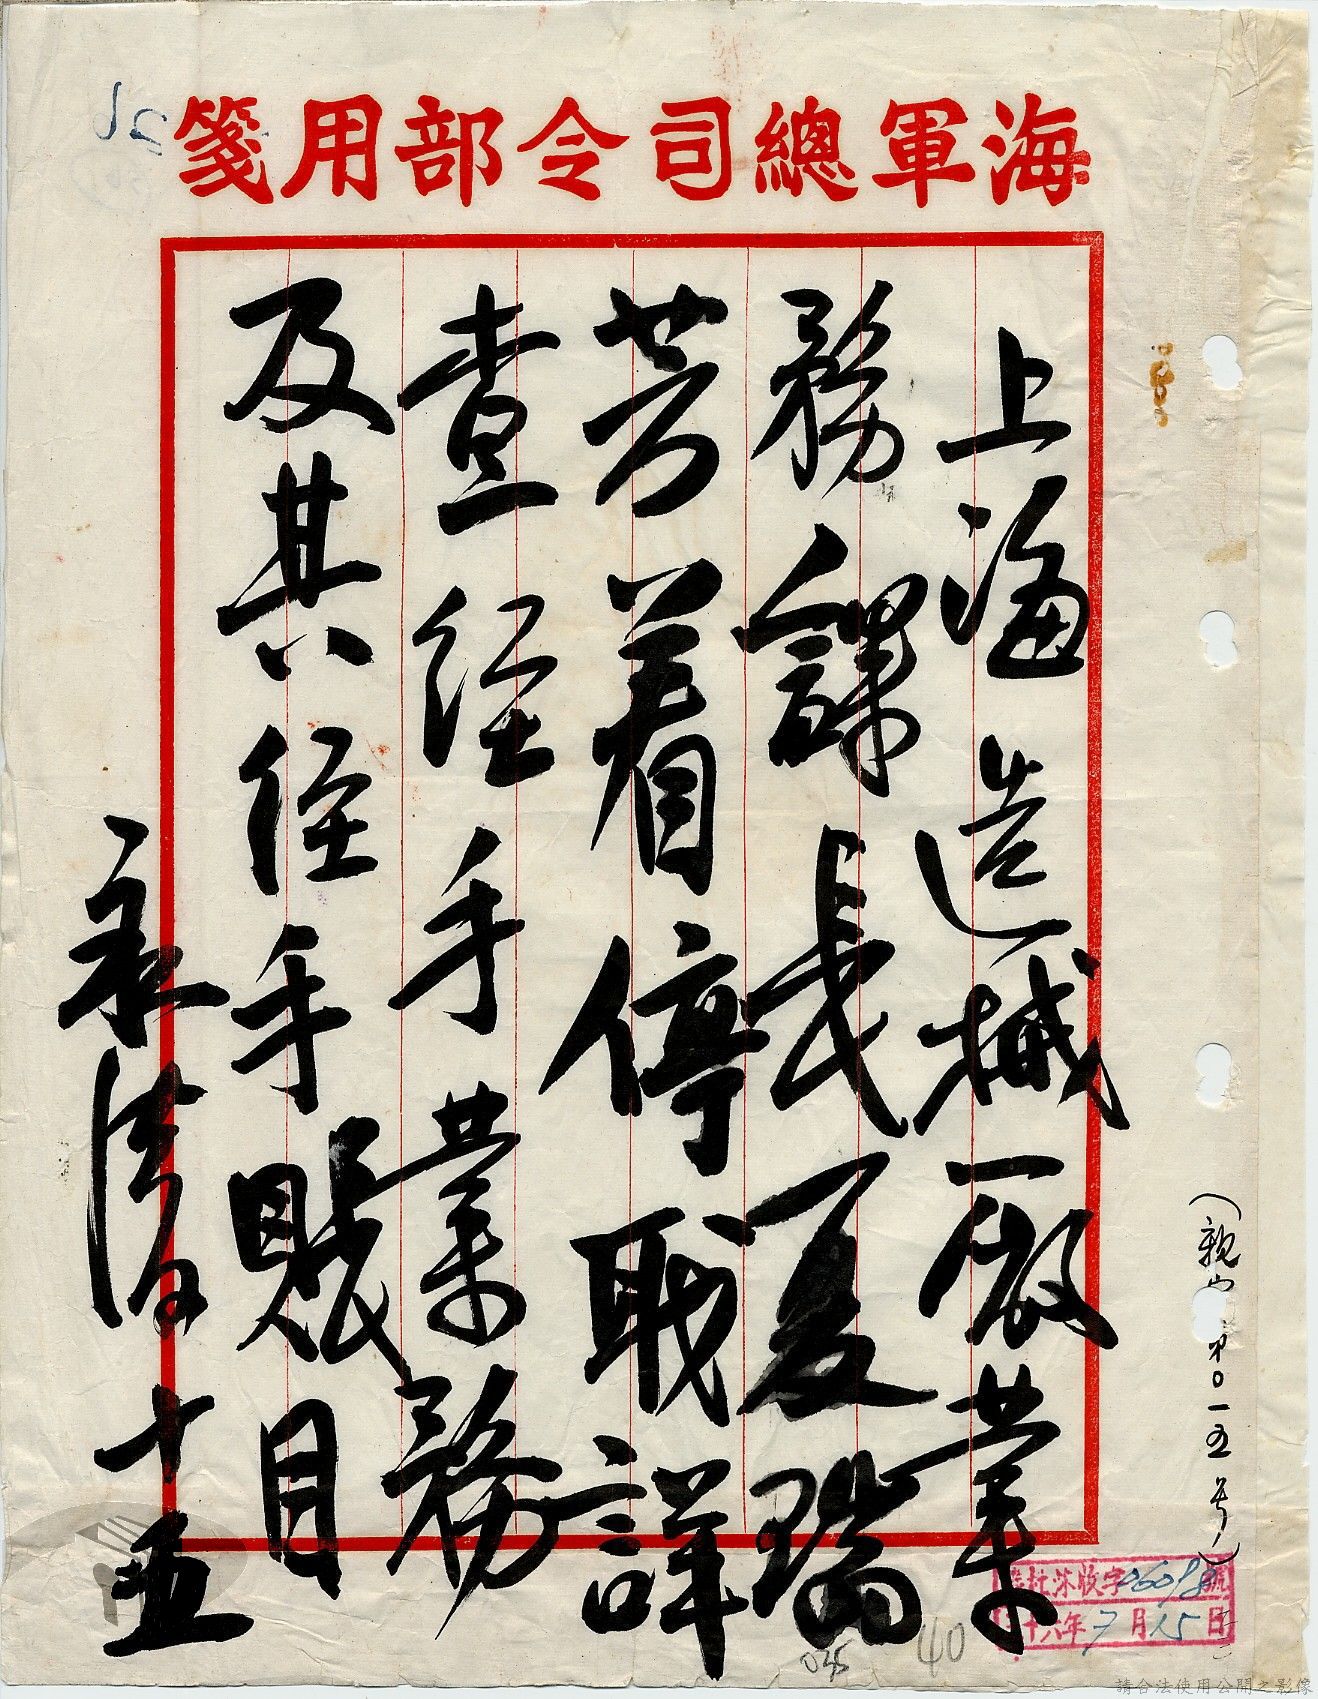 海軍總司令部用箋
上海造械廠業
務課長夏瑞
芳着停職詳
查經手業務
及其經手賬目
永清十五
第0一五號)
收字0609號
十六年7月15日
40
請合法使用公開之影像